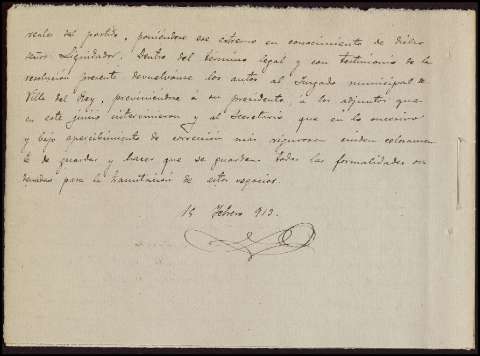 reales del partido, poniéndose ese extremo en conocimiento de dicho
señor Liquidador. Dentro del término legal y con testimonio de la
resolución presente devuélvanse los autos al Juzgado municipal de
Villa del Rey, previniéndose á su presidente, á los adjuntos que
en este juicio intervinieron y al Secretario que en lo sucesivo
y bajo apercibimiento de corrección más rigurosa cuiden celosamen
te de guardar y hacer que se guarden todas las formalidades or
denadas para la tramitación de estos negocios.
15 Febrero 913.